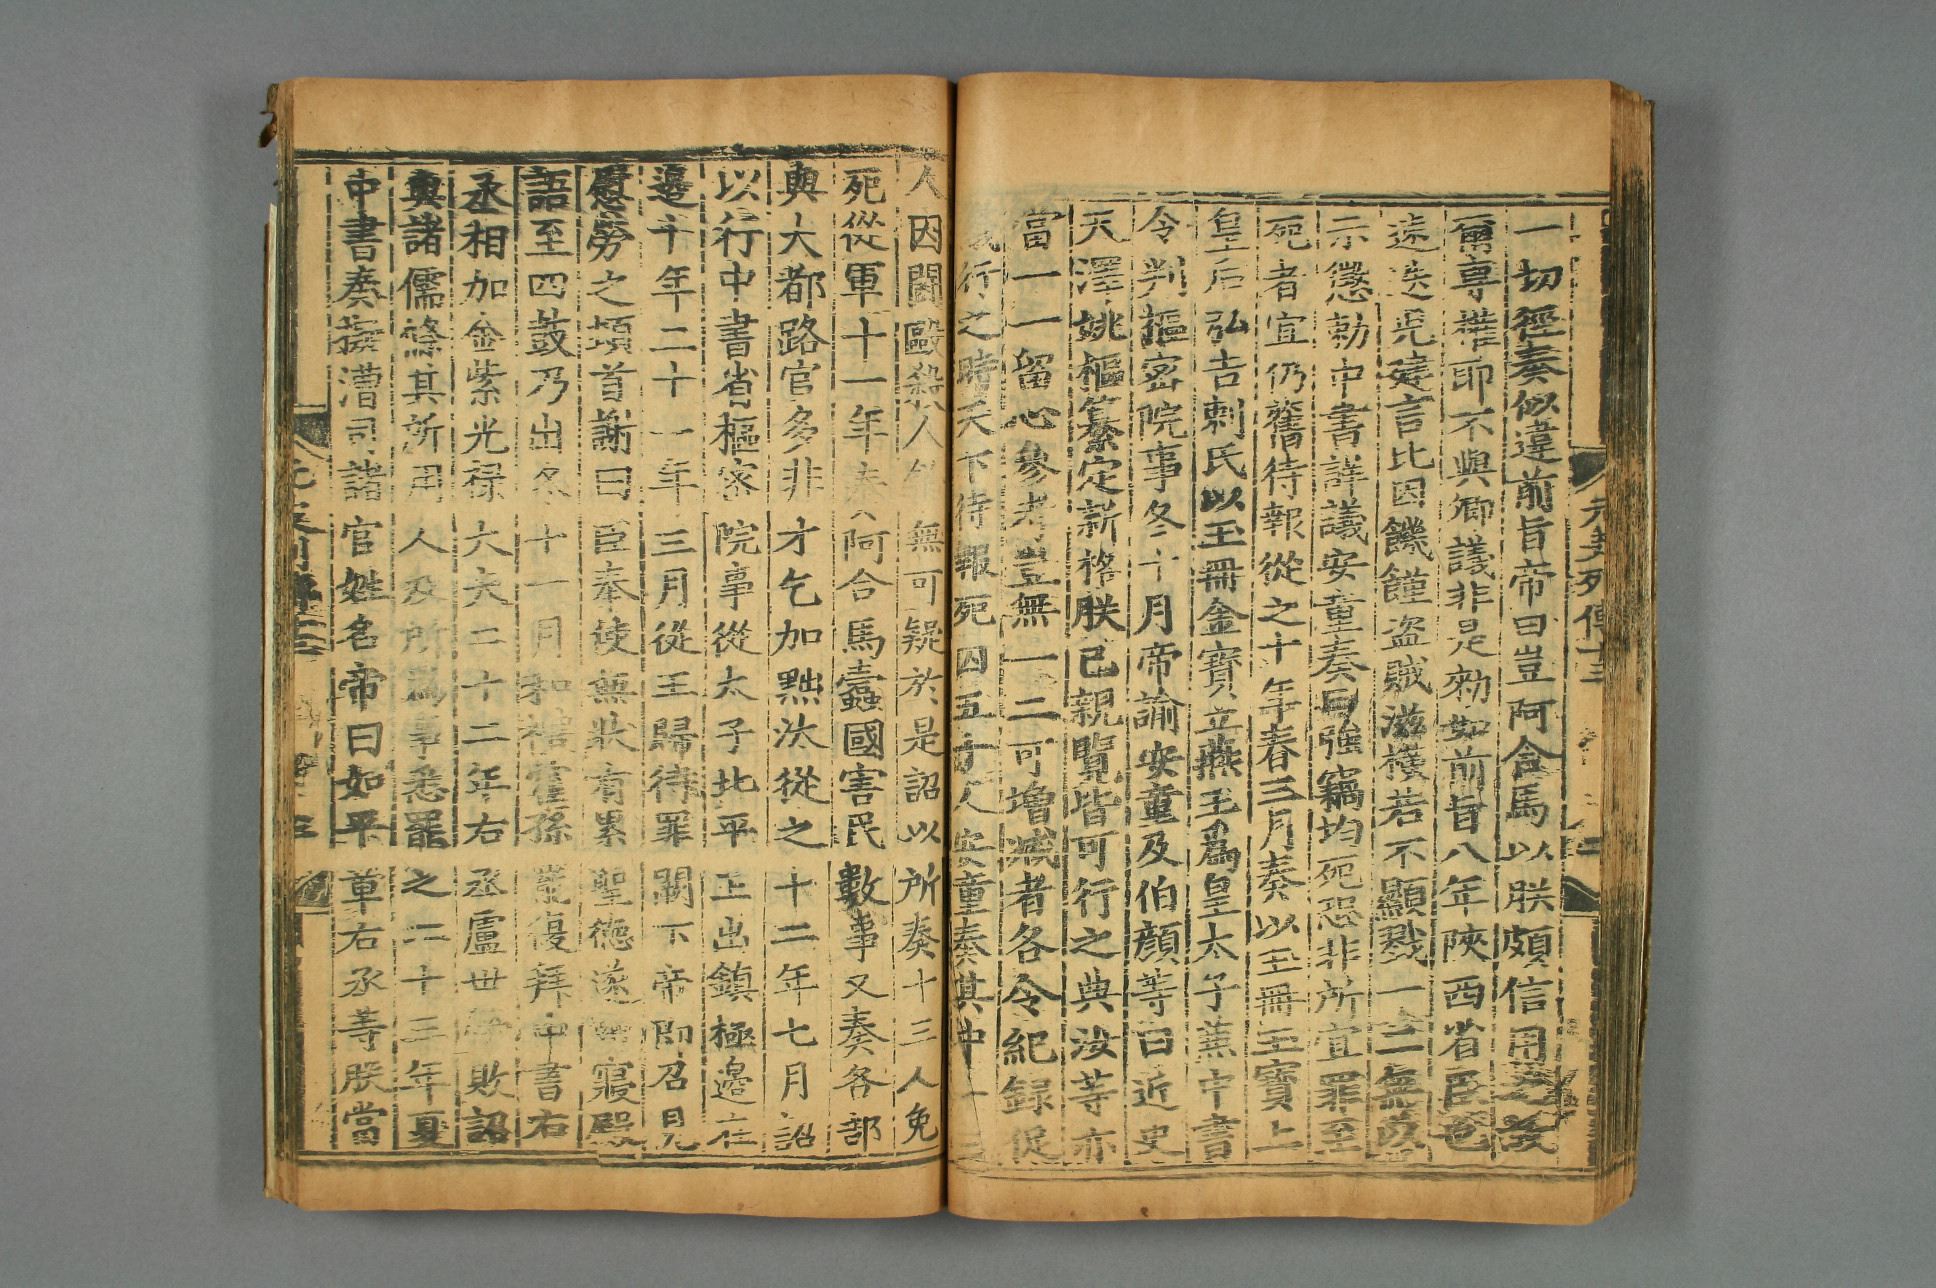 元史列傳十三
一切徑奏似違前旨帝曰豈阿合馬以朕頗信用
爾專權耶不與卿議非是勑如前旨八年陝西省臣也
速迭兒建言比因饑饉盗賊滋橫若不顯戮一二無以
示懲勅中書詳議安童奏曰強竊均死恐非所宜罪至
死者宜仍舊待報從之十年春三月奏以玉冊玉寶上
皇后弘吉剌氏以玉冊金寶立燕王爲皇太子兼中書
令判樞密院事冬十月帝諭安童及伯顏等曰近史
天澤姚樞纂定新格朕已親覽皆可行之典汝等亦
當一一留心參考豈無一二可增減者各令紀録促
議行之時天下待報死囚五十人安童奏其中十三
人因鬭毆殺人無可疑於是詔以所奏十三人免
死從軍十一年奏阿合馬蠹國害民數事又奏各部
與大都路官多非才乞加黜汰從之十二年七月詔
以行中書省樞密院事從太子北平王出鎮極邊在
邊十年二十一年三月從王歸待罪闕下帝即召見
慰勞之頓首謝曰臣奉使無狀有累聖德遂留寢殿
語至四鼓乃出冬十一月和禮霍孫罷復拜中書右
丞相加金紫光禄大夫二十二年右丞盧世榮敗詔
與諸儒條其所用人及所爲事悉罷之二十三年夏
中書奏擬漕司諸官姓名帝曰如平章右丞等朕當